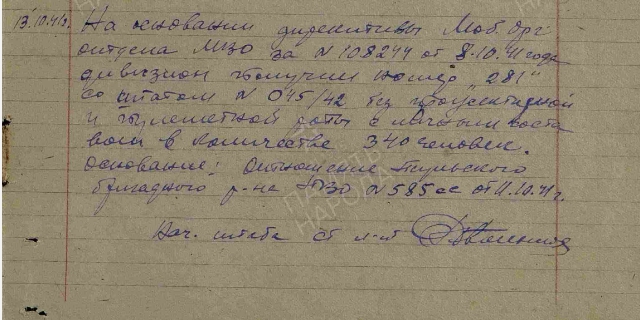 13.10.41г. На основании директивы Моб. Орг
отдела МЗО за N 108244 от 8.10.41 года
дивизион получил номер "281"
со штатом N 045/42 без прожекторной
и пулеметной роты с личным соста
вом в количестве 340 человек.
Основание: Отношение Тульского
бригадного р-на ПВО N 585сс от 11.10.41г.
Нач. штаба ст л-т
ПАМЯТЬ
НАРОДА